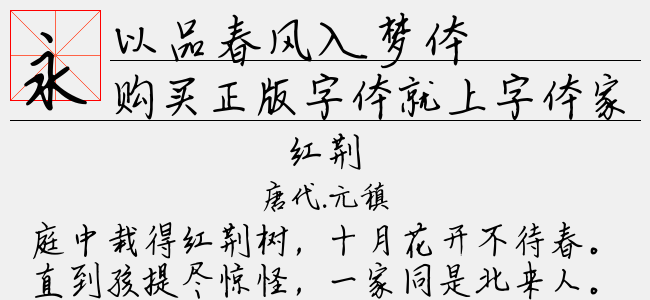 永
以品春风入梦体
购买正版字体就上字体家
红荆
唐代.元稹
庭中栽得红荆树，十月花开不待春。
直到孩提尽惊怪，一家同是北来人。